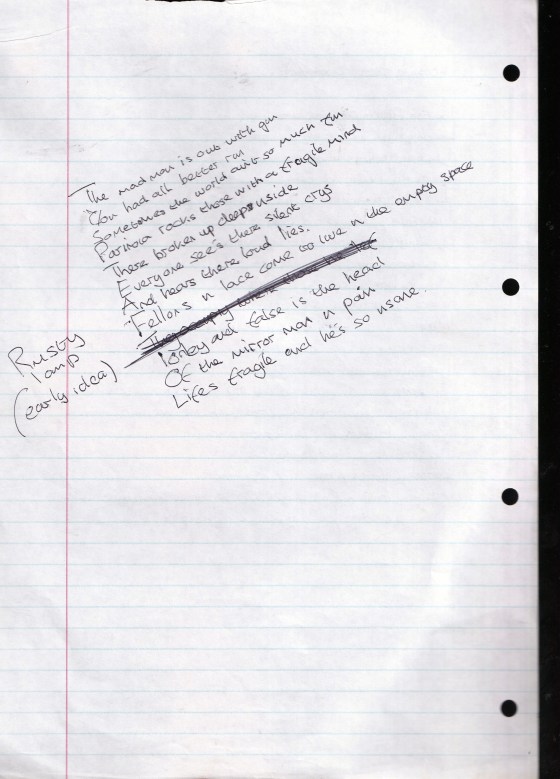 The madman is out with gun
You had all better run
Sometimes the world ain't so much fun
rocks those with a fragile mind
There broken up deep inside
Everyone see's there silent crys
And hears there loud lies.
Fellons n lace come to live n the empty space
and false is the head
Of the mirror man n pain
Lifes fragile and he's so nsane.
Rusty
lamp
(early idea)